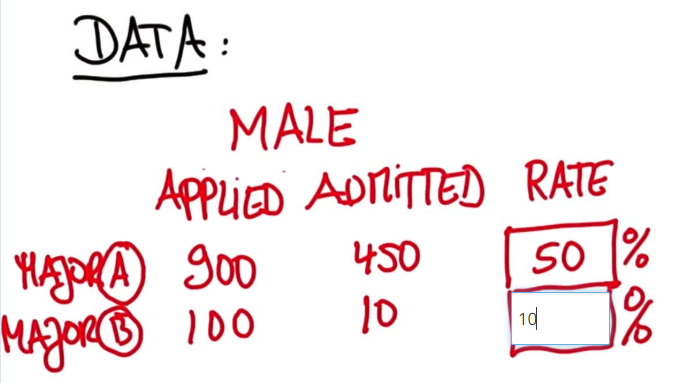 DATA:
MALE
APPLIED ADMITTED RATE
MAJOR A 900 450 50 %
MAJOR B 100 10 10 %